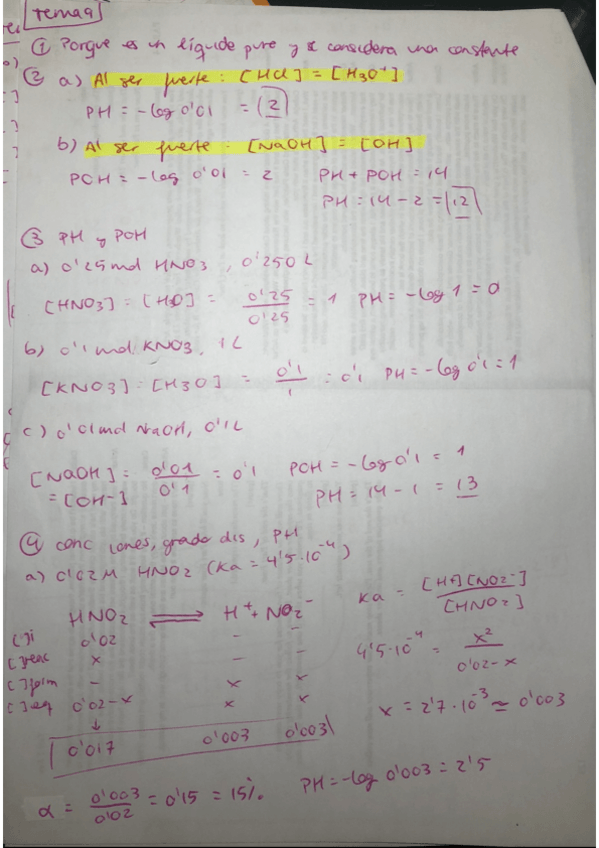 tema 9
① Porque es un líquido puro y se considera una constante
② a) Al ser fuerte: [HCl] = [H3O+]
PH = -log 0'01 = 2
b) Al ser fuerte: [NaOH] = [OH]
POH = -log 0'01 = 2 PH + POH = 14
PH = 14 - 2 = 12
③ PH y POH
a) 0'25 mol HNO3, 0'250 L
[HNO3] = [H3O] = 0'25 / 0'25 = 1 PH = -log 1 = 0
b) 0'1 mol KNO3, 1 L
[KNO3] = [H3O] = 0'1 / 1 = 0'1 PH = -log 0'1 = 1
c) 0'01 mol NaOH, 0'1 L
[NaOH] = 0'01 / 0'1 = 0'1 POH = -log 0'1 = 1
= [OH-] PH = 14 - 1 = 13
④ conc iones, grado dis, PH
a) 0'02 M HNO2 (Ka = 4'5·10⁻⁴)
HNO2 ⇌ H⁺ + NO2⁻ Ka = [H+][NO2⁻] / [HNO2]
[ ]i 0'02 - -
[ ]reac x - - 4'5·10⁻⁴ = x² / 0'02-x
[ ]form - x x
[ ]eq 0'02-x x x x = 2'7·10⁻³ ≈ 0'003
↓
0'017 0'003 0'003
α = 0'003 / 0'02 = 0'15 = 15% PH = -log 0'003 = 2'5